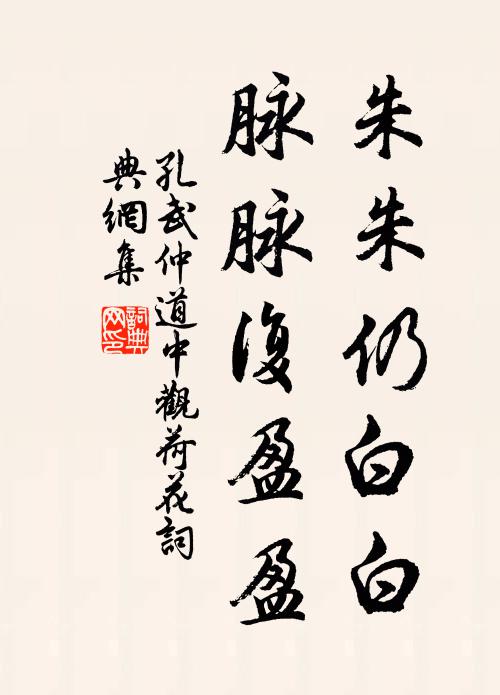 朱朱仍白白
脉脉復盈盈
孔武仲道中觀荷花詞
典網集
詞典
网印